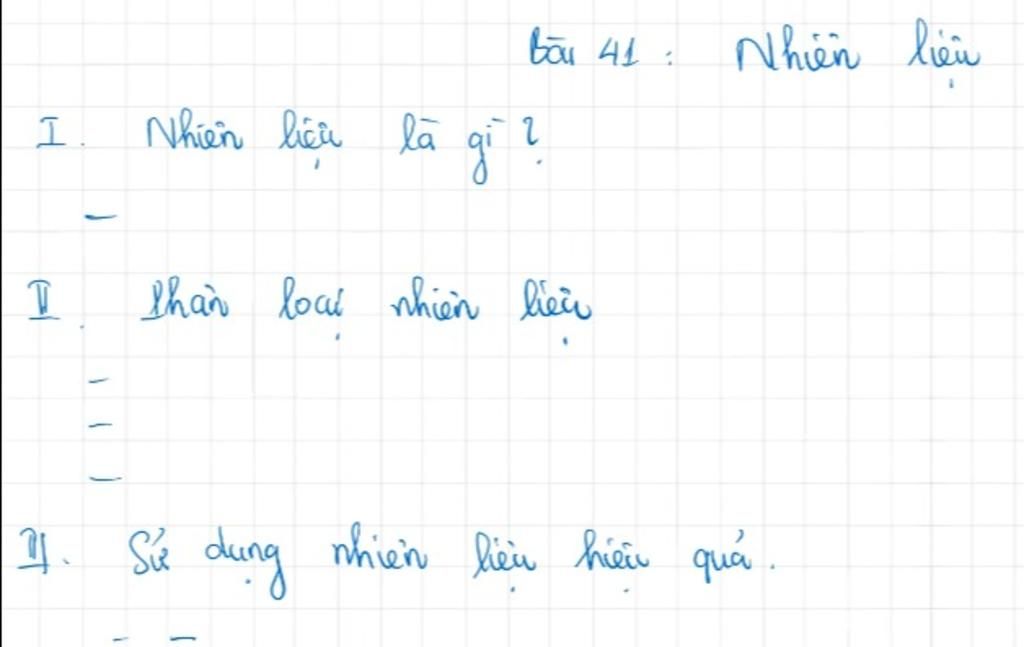 Bài 41 : Nhiên liệu
I. Nhiên liệu là gì ?
-
II. Phân loại nhiên liệu
-
-
-
III. Sử dụng nhiên liệu hiệu quả.
- -